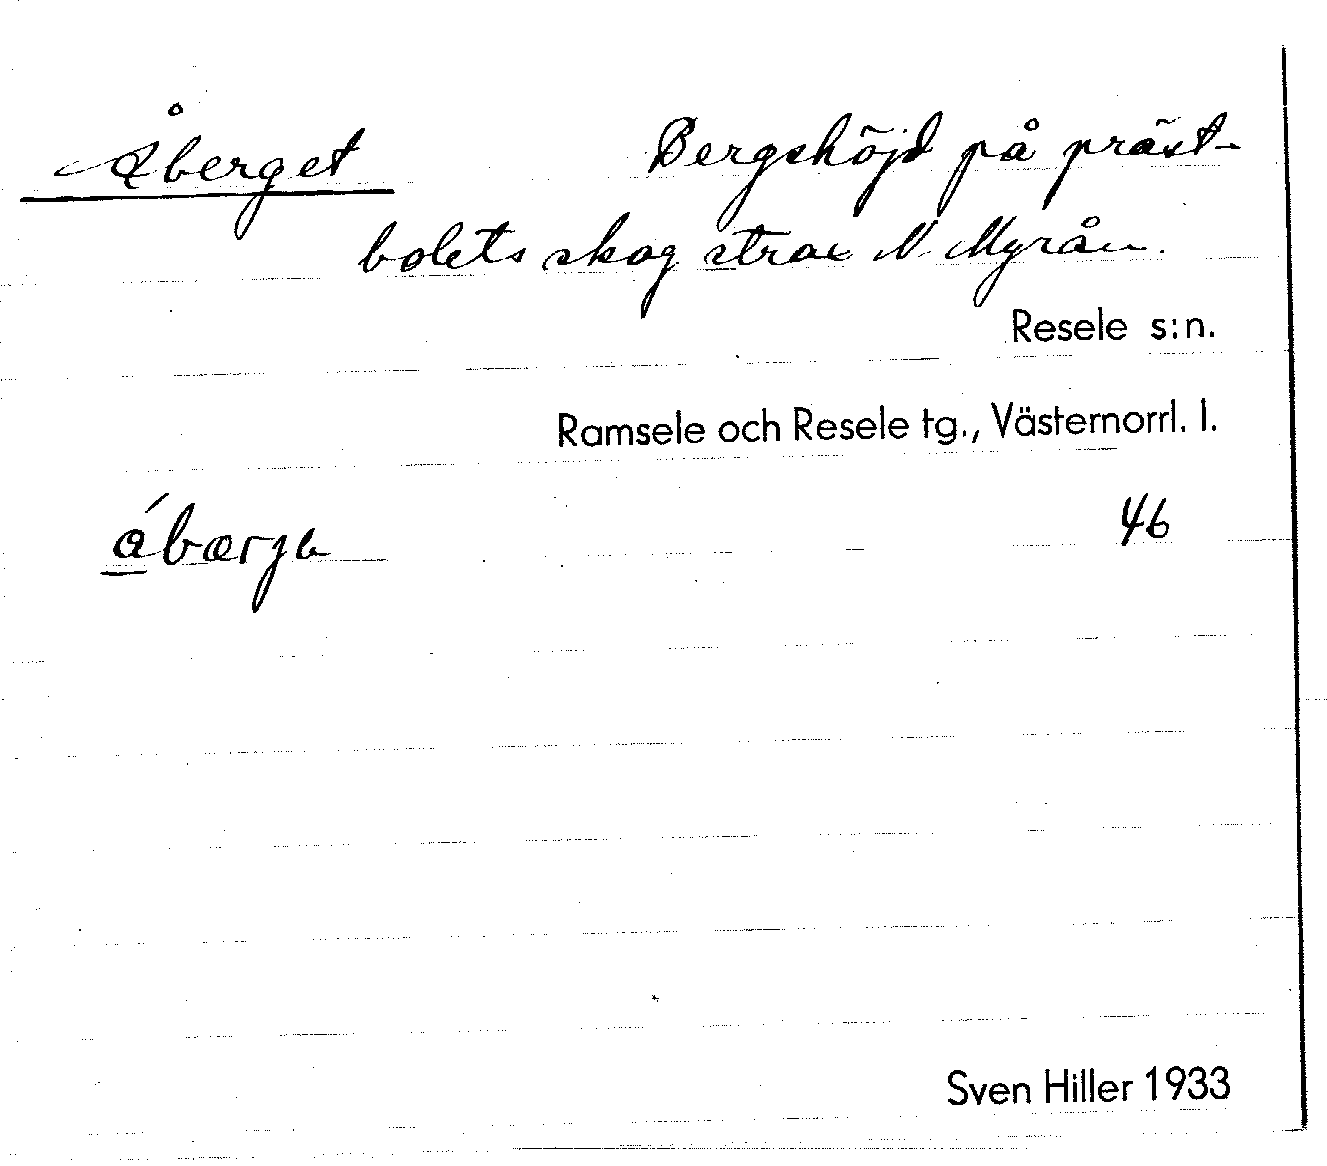 Åberget Bergshöjd på präst-
bolets skog strax N. Myrån.
Resele s:n.
Ramsele och Resele tg., Västernorrl. l.
åb​ærjə 46
Sven Hiller 1933